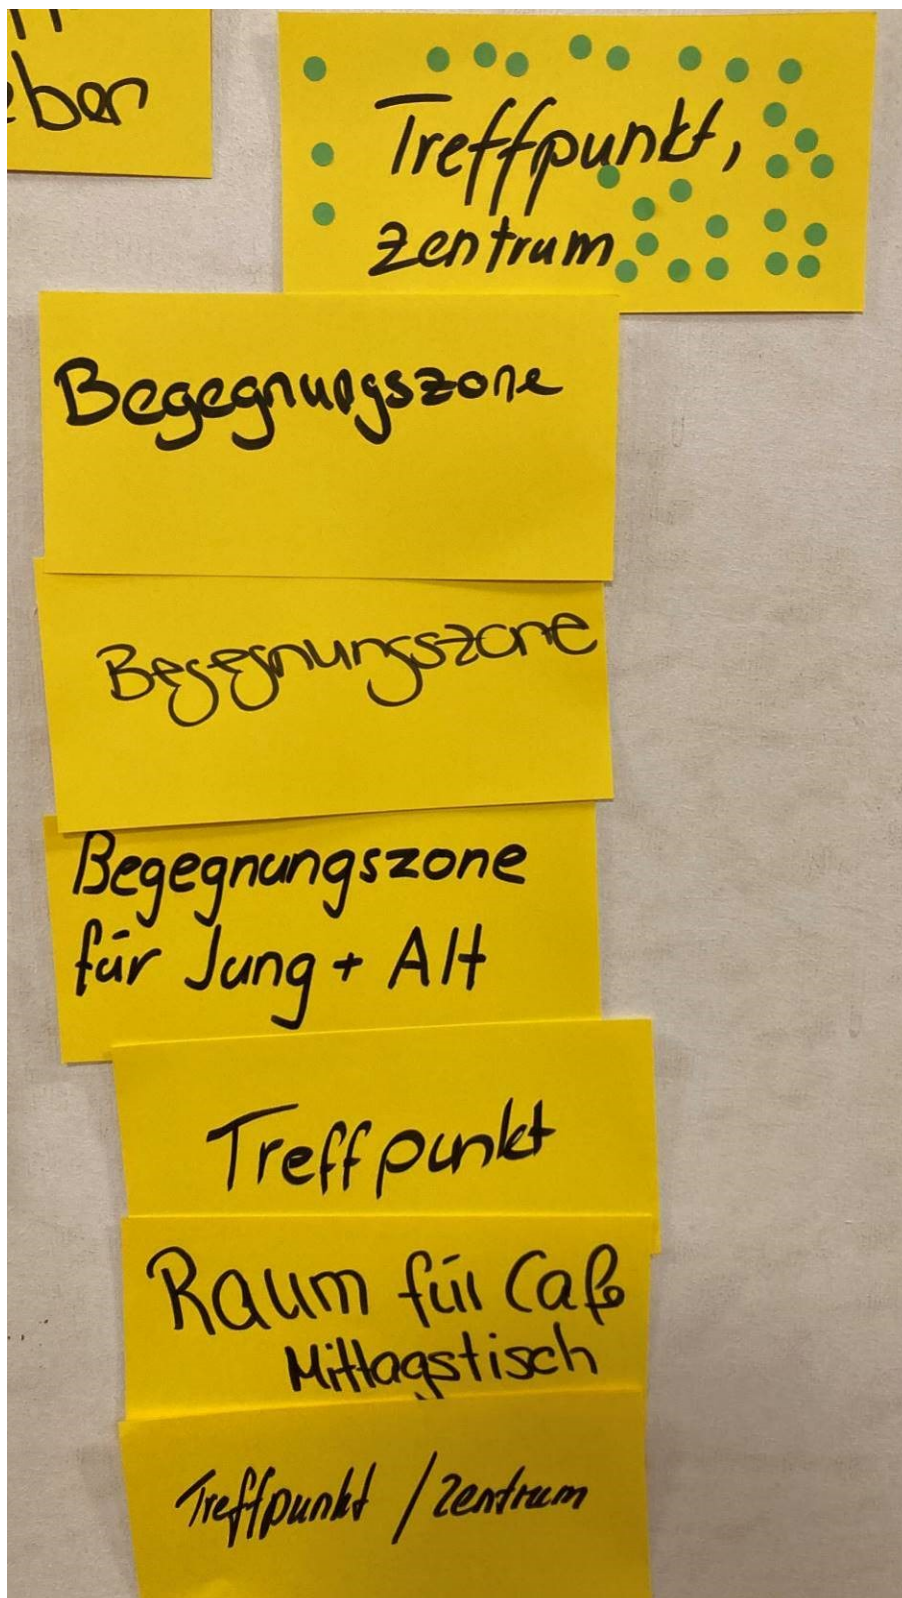 eben
Treffpunkt,
Zentrum
Begegnungszone
Begegnungszone
Begegnungszone
für Jung + Alt
Treffpunkt
Raum für Cafe
Mittagstisch
Treffpunkt / Zentrum